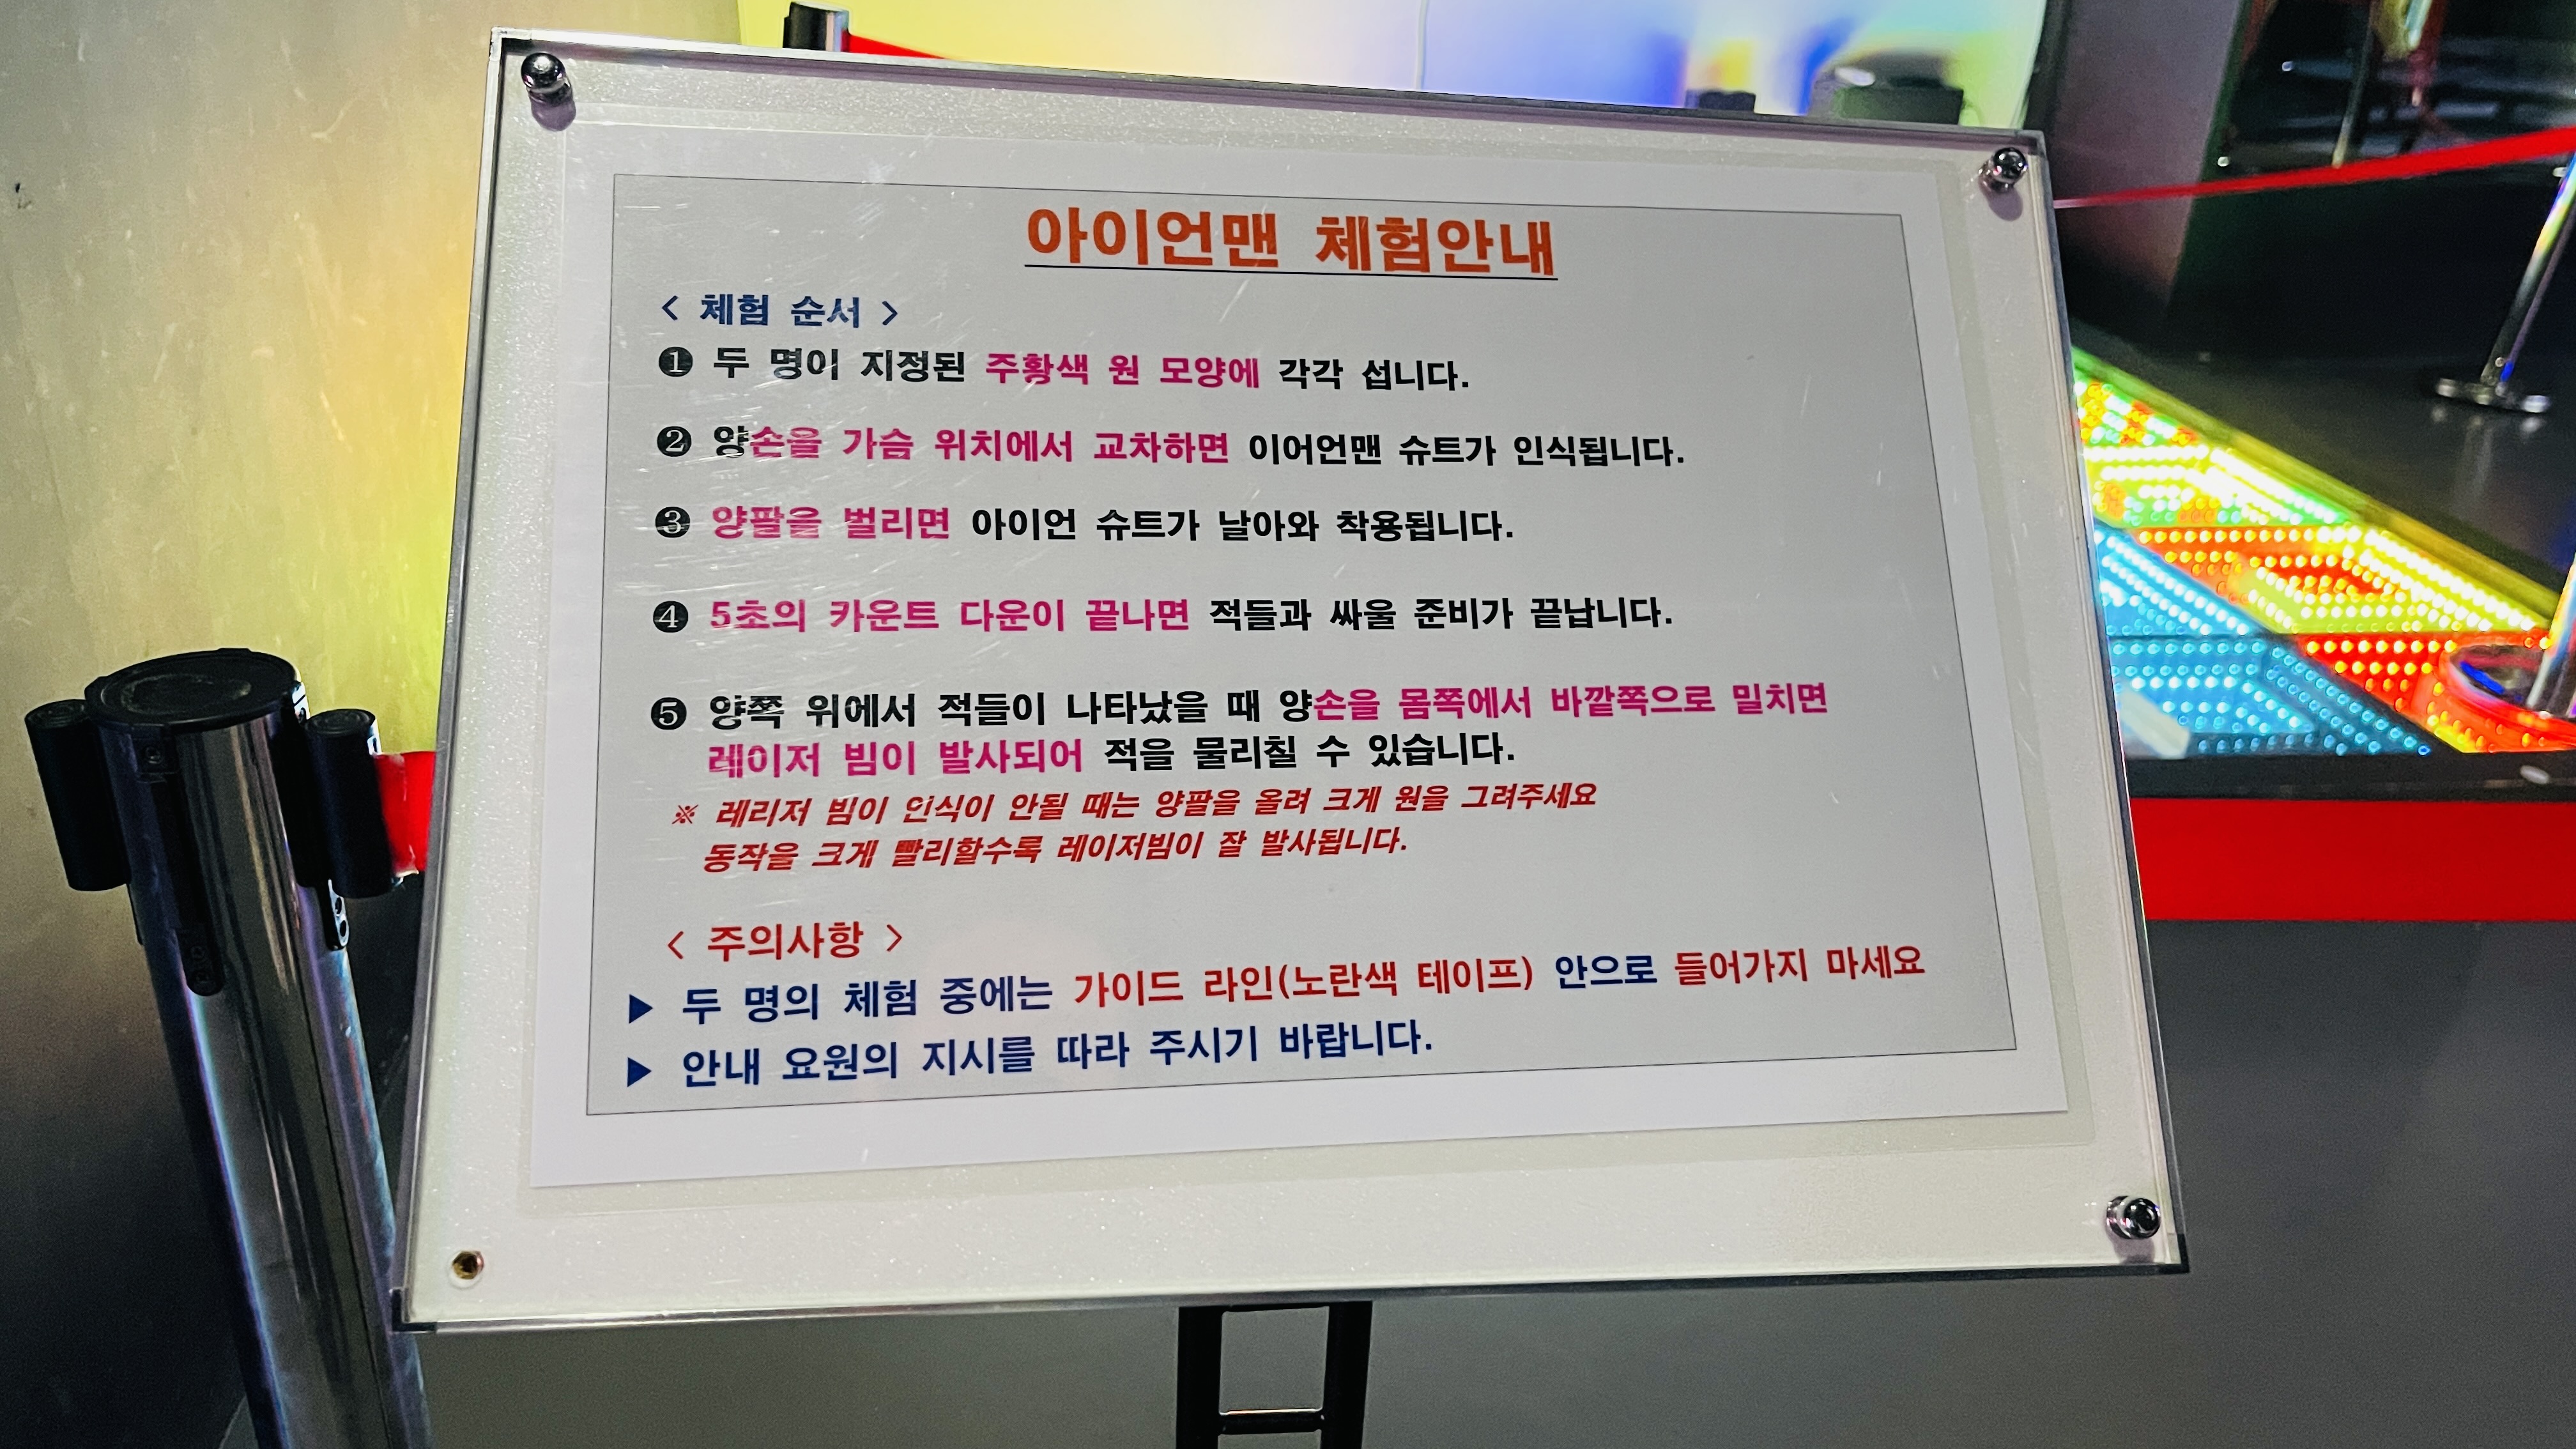 아이언맨 체험안내
< 체험 순서 >
❶ 두 명이 지정된 주황색 원 모양에 각각 섭니다.
❷ 양손을 가슴 위치에서 교차하면 이어언맨 슈트가 인식됩니다.
❸ 양팔을 벌리면 아이언 슈트가 날아와 착용됩니다.
❹ 5초의 카운트 다운이 끝나면 적들과 싸울 준비가 끝납니다.
❺ 양쪽 위에서 적들이 나타났을 때 양손을 몸쪽에서 바깥쪽으로 밀치면
레이저 빔이 발사되어 적을 물리칠 수 있습니다.
※ 레리저 빔이 인식이 안될 때는 양팔을 올려 크게 원을 그려주세요
동작을 크게 빨리할수록 레이저빔이 잘 발사됩니다.
< 주의사항 >
▶ 두 명의 체험 중에는 가이드 라인(노란색 테이프) 안으로 들어가지 마세요
▶ 안내 요원의 지시를 따라 주시기 바랍니다.